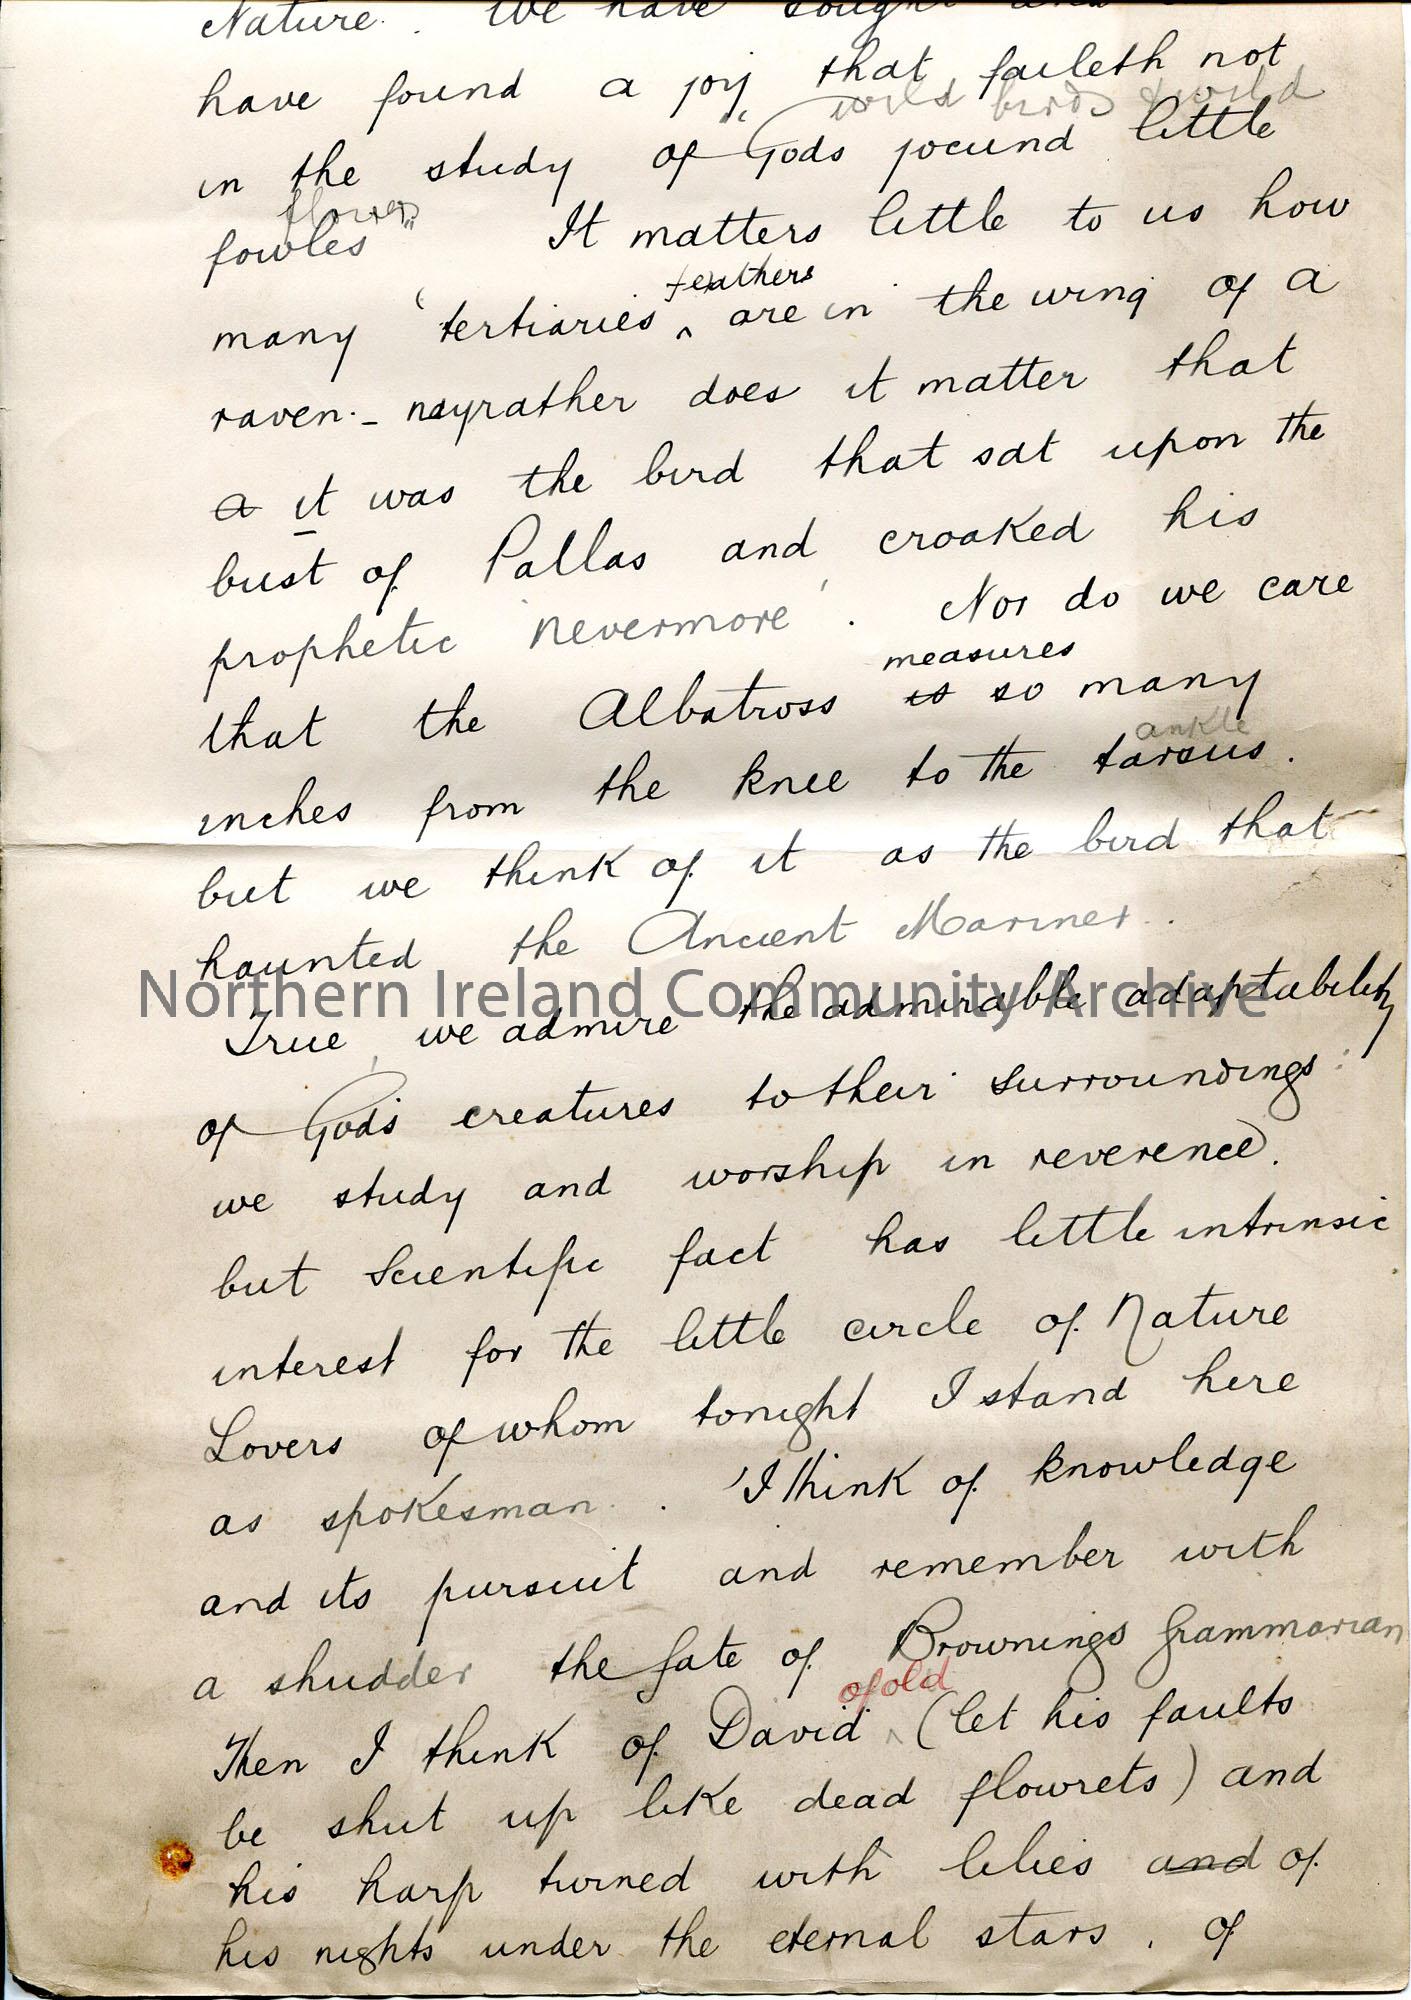 Nature. We have sought and
have found a joy that faileth not
wild birds & wild
in the study of "Gods jocund little
flowers
fowles" It matters little to us how
feathers
many 'tertiaries' ^ are in the wing of a
raven. - nay rather does it matter that
a it was the bird that sat upon the
bust of Pallas and croaked his
prophetic 'nevermore'. Nor do we care
measures
that the Albatross is so many
ankle
inches from the knee to the tarsus.
but we think of it as the bird that
haunted the Ancient Mariner.
Northern Ireland Community Archive
True, we admire the admirable adaptability
of God's creatures to their surroundings:
we study and worship in reverence.
but Scientific fact has little intrinsic
interest for the little circle of Nature
Lovers of whom tonight I stand here
as spokesman. 'I think of knowledge
and its pursuit and remember with
a shudder the fate of Brownings Grammarian
of old
Then I think of David ^ (let his faults
be shut up like dead flowrets) and
his harp turned with lilies and of
his nights under the eternal stars, of